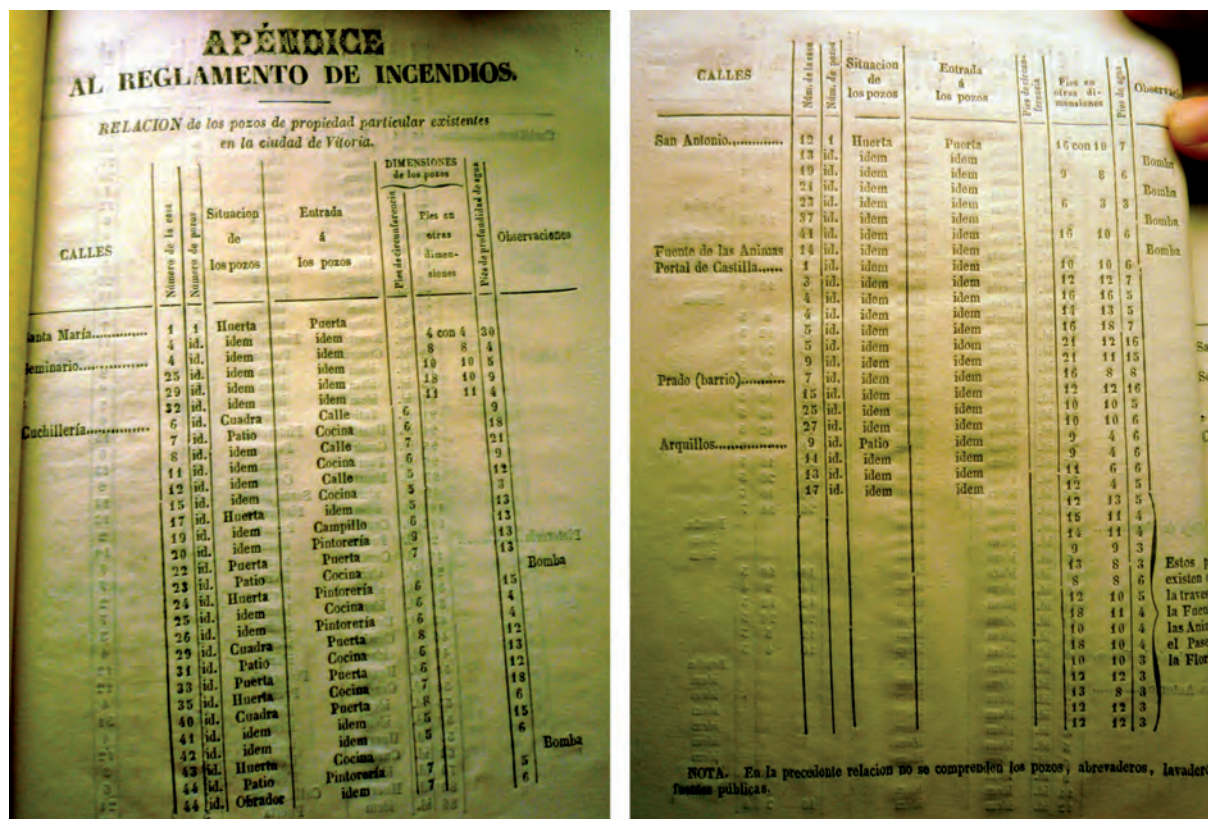 APÉNDICE
AL REGLAMENTO DE INCENDIOS.
RELACION de los pozos de propiedad particular existentes
en la ciudad de Vitoria.
CALLES Número de la casa Número de pozos Situacion de los pozos Entrada á los pozos DIMENSIONES de los pozos Pies de circunferencia Pies en otras dimensiones Pies de profundidad de agua Observaciones
Santa María............... 1 1 Huerta Puerta 4 con 4 30
4 id. idem idem 8 8 4
Seminario................. 4 id. idem idem 10 10 5
25 id. idem idem 18 10 9
29 id. idem idem 11 11 4
32 id. idem idem
Cuchillería............... 6 id. Cuadra Calle 6 9
7 id. Patio Cocina 6 18
8 id. idem Calle 7 21
11 id. idem Cocina 6 9
12 id. idem Calle 5 12
15 id. idem Cocina 5 3
17 id. Huerta idem 5 13
19 id. idem Campillo 6 13
20 id. idem Pintorería 9 13
22 id. Puerta Puerta 7 13
23 id. Patio Cocina Bomba
24 id. Huerta Pintorería 6 15
25 id. idem Cocina 6 4
26 id. idem Pintorería 6 4
29 id. Cuadra Puerta 8 12
31 id. Patio Cocina 6 13
33 id. Puerta Puerta 6 12
35 id. Huerta Cocina 7 18
40 id. Cuadra Puerta 8 6
41 id. idem idem 5 15
42 id. idem idem 5 6
43 id. Huerta Cocina Bomba
44 id. Patio Pintorería 7 5
44 id. Obrador idem 7 6
CALLES Núm. de la casa Núm. de pozos Situacion de los pozos Entrada á los pozos Pies de circunferencia Pies en otras dimensiones Pies de agua
San Antonio.............. 12 1 Huerta Puerta 16 con 10 7
13 id. idem idem Bomba
19 id. idem idem 9 8 6
21 id. idem idem Bomba
23 id. idem idem 6 3 3
37 id. idem idem Bomba
41 id. idem idem 16 10 6
Fuente de las Animas 14 id. idem idem Bomba
Portal de Castilla...... 1 id. idem idem 10 10 6
3 id. idem idem 12 12 7
4 id. idem idem 16 16 5
4 id. idem idem 14 13 5
5 id. idem idem 16 18 7
5 id. idem idom 21 12 16
9 id. idem idem 21 11 15
Prado (barrio)........... 7 id. idem idem 16 8 8
15 id. idem idem 12 12 16
25 id. idem idem 10 10 5
27 id. idem idem 10 10 6
Arquillos................. 9 id. Patio idem 9 4 6
11 id. idem idem 9 4 6
13 id. idem idem 11 6 6
17 id. idem idem 12 4 5
12 13 5
15 11 4
14 11 4
9 9 3
13 8 3 Estos
8 8 6 existen
12 10 5 la trave
18 11 4 la Fuen
10 10 4 las Ani
18 10 4 el Pase
10 10 3 la Flor
12 12 3
13 8 3
12 12 3
12 12 3
NOTA. En la precedente relacion no se comprenden los pozos, abrevaderos, lavadero
fuentes públicas.